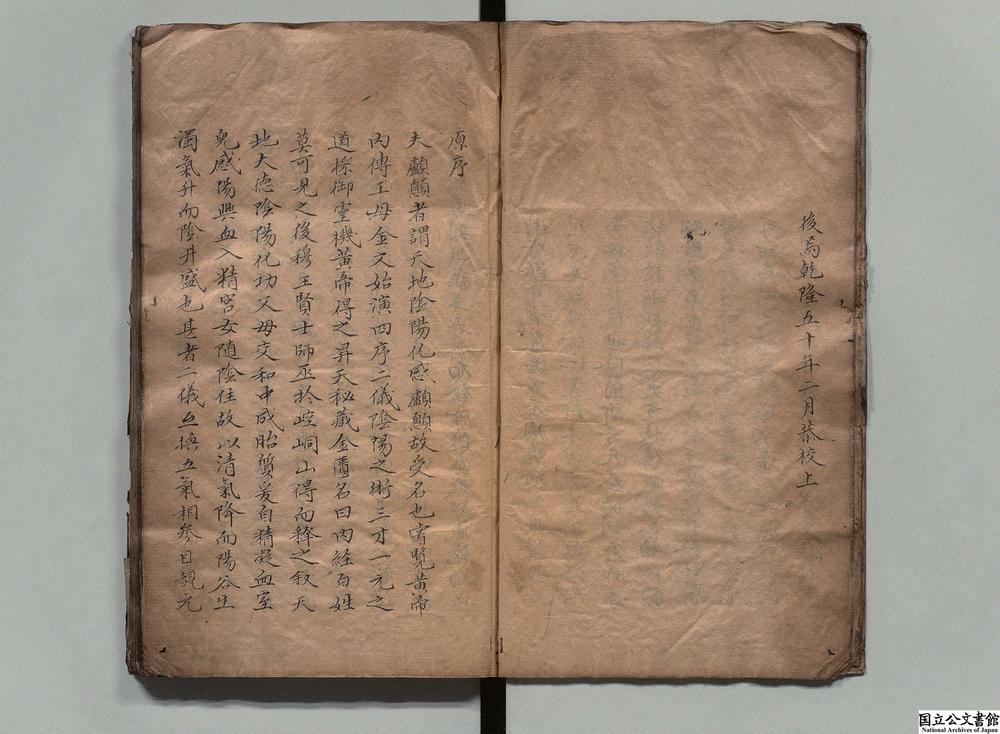 後焉乾隆五十年二月恭校上
原序
夫顱顖者謂天地陰陽化感顱顖故受名也甞覽黄帝
内傳王母金文始演四序二儀陰陽之術三才一元之
道採御靈機黄帝得之昇天秘藏金匱名曰内經百姓
莫可見之後穆王賢士師巫於崆峒山得而釋之叙天
地大德陰陽化功父母交和中成胎質爰自精凝血室
兒感陽興血入精宫女随陰住故以清氣降而陽谷生
濁氣升而陰井盛也甚者二儀互換五氣相參目覩元
国立公文書館
National Archives of Japan